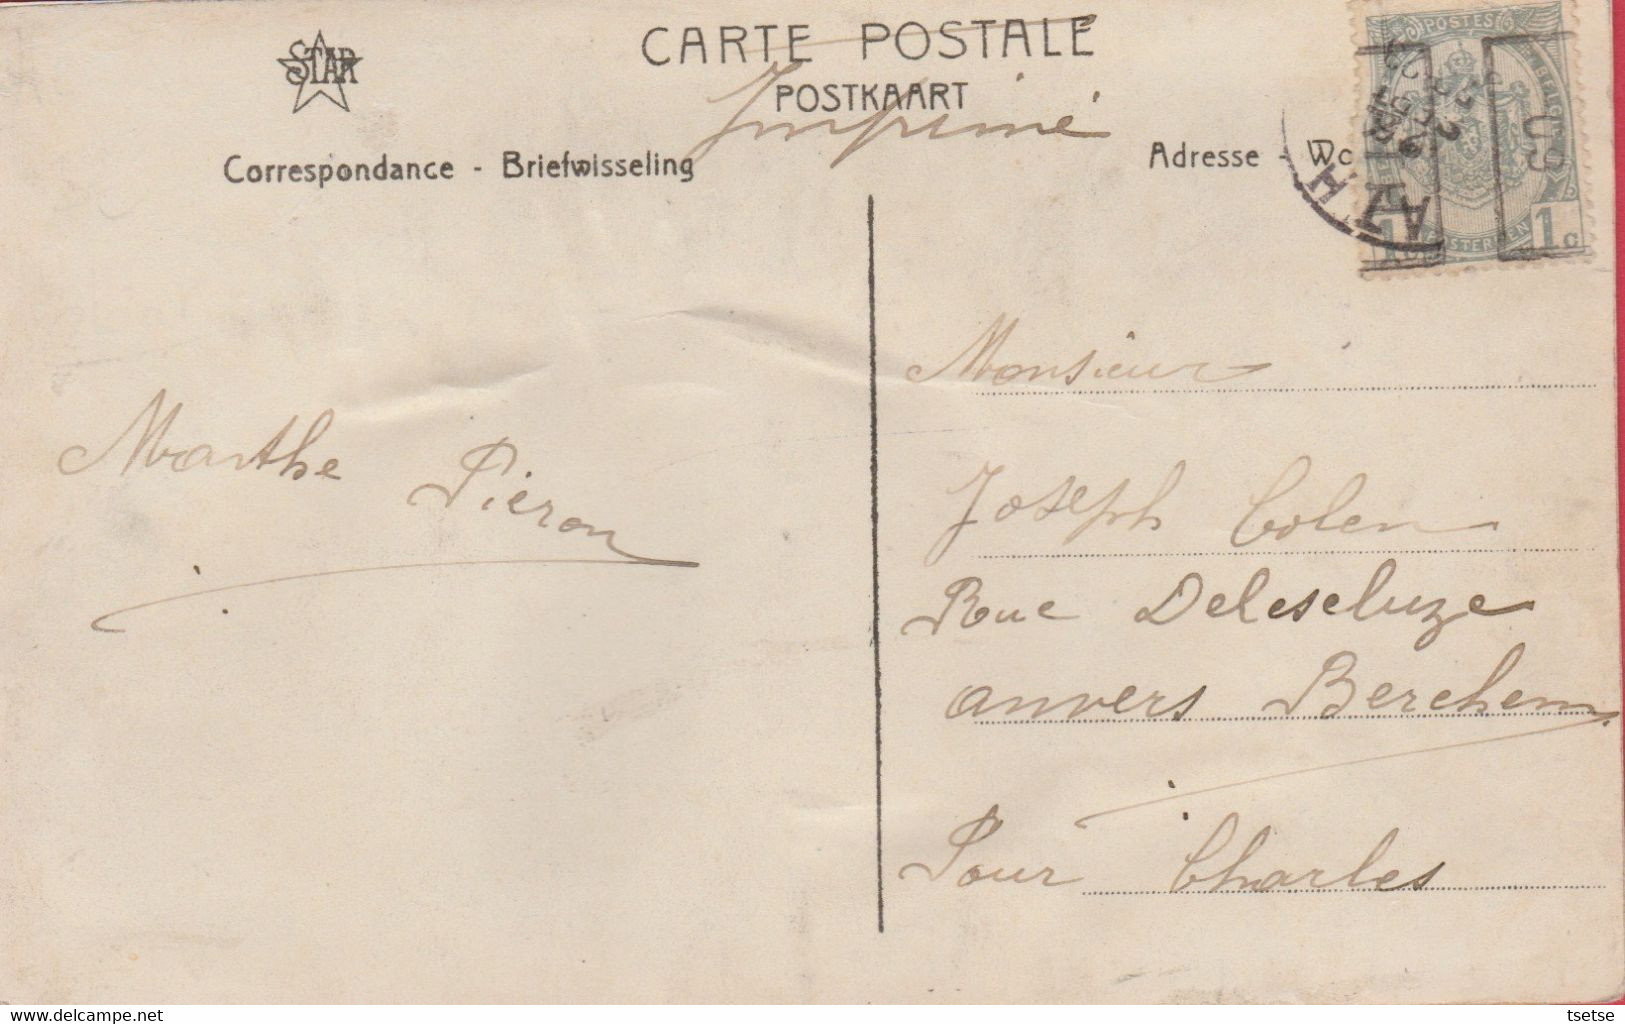 STAR
CARTE POSTALE
POSTKAART
Imprimé
Correspondance - Briefwisseling
Adresse - Wo
POSTES
1c 1c
Marthe Pieron
Monsieur
Joseph Colen
Rue Delescluze
anvers Berchem
Pour Charles
delcampe.net
tsetse